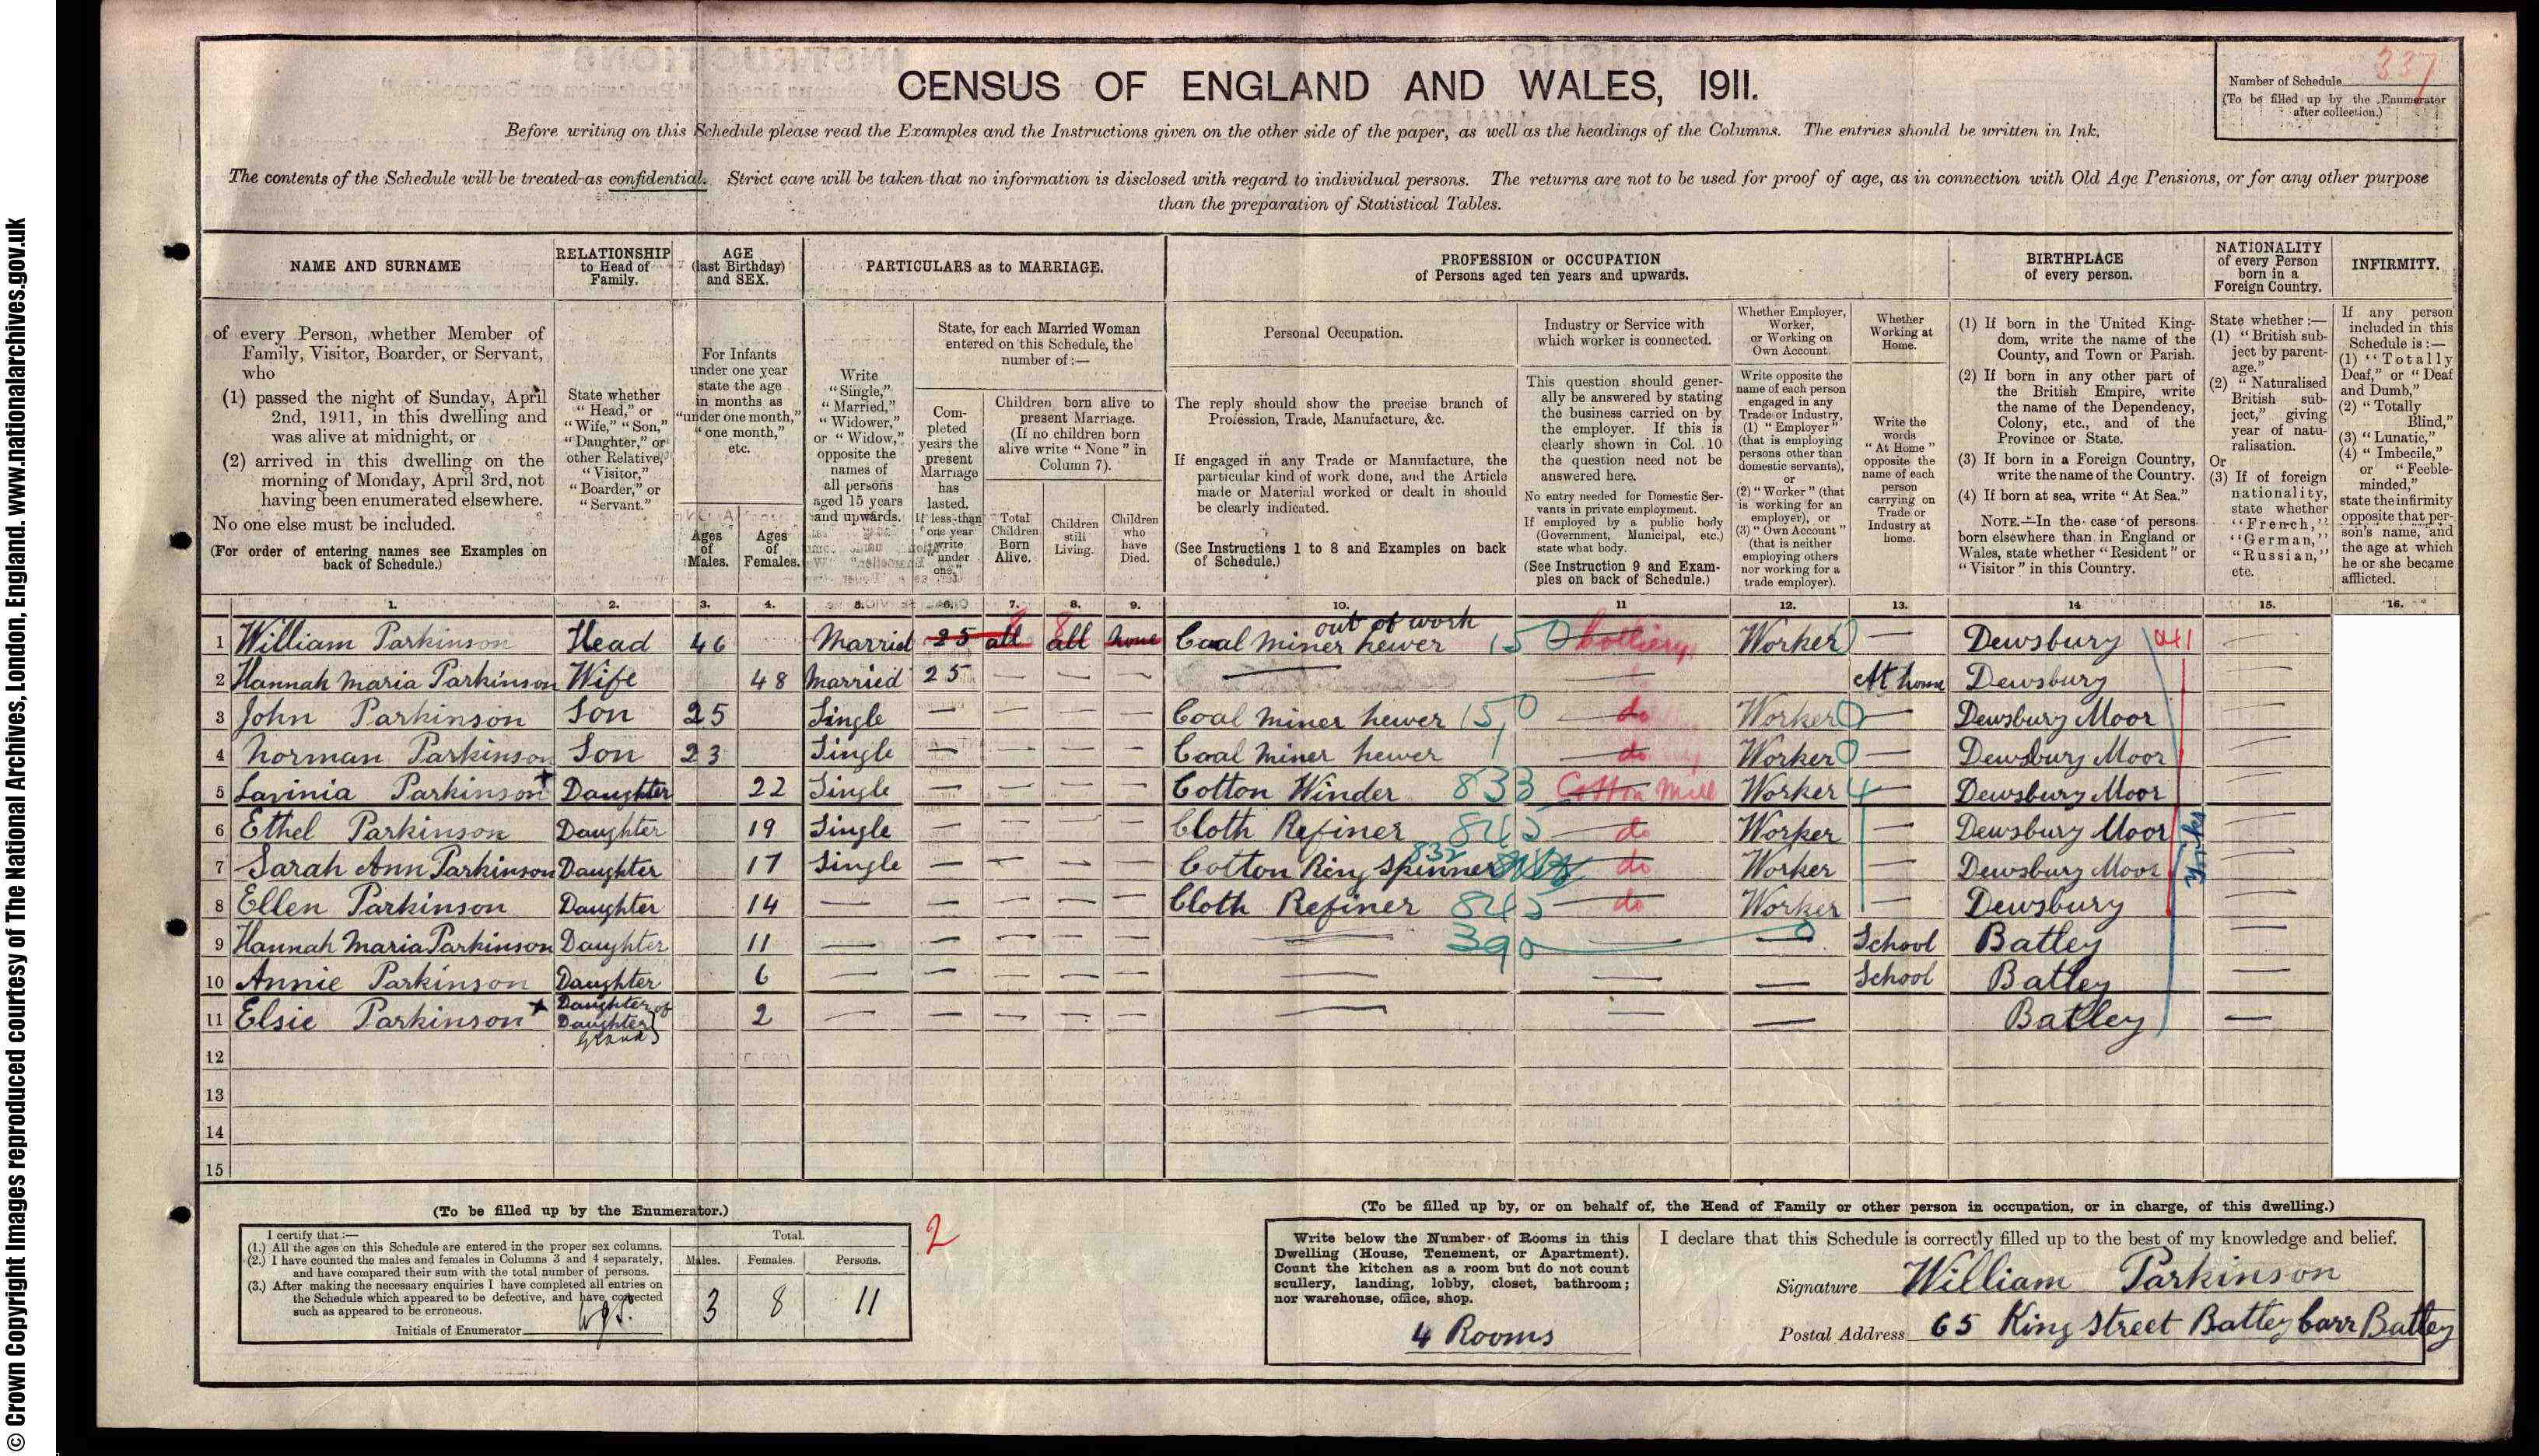 © Crown Copyright Images reproduced courtesy of The National Archives, London, England. www.nationalarchives.gov.uk
CENSUS OF ENGLAND AND WALES, 1911.
Number of Schedule 337
(To be filled up by the Enumerator
after collection.)
Before writing on this Schedule please read the Examples and the Instructions given on the other side of the paper, as well as the headings of the Columns. The entries should be written in Ink.
The contents of the Schedule will be treated as confidential. Strict care will be taken that no information is disclosed with regard to individual persons. The returns are not to be used for proof of age, as in connection with Old Age Pensions, or for any other purpose
than the preparation of Statistical Tables.
NAME AND SURNAME
of every Person, whether Member of
Family, Visitor, Boarder, or Servant,
who
(1) passed the night of Sunday, April
2nd, 1911, in this dwelling and
was alive at midnight, or
(2) arrived in this dwelling on the
morning of Monday, April 3rd, not
having been enumerated elsewhere.
No one else must be included.
(For order of entering names see Examples on
back of Schedule.)
RELATIONSHIP
to Head of
Family.
State whether
"Head," or
"Wife," "Son,"
"Daughter," or
other Relative,
"Visitor,"
"Boarder," or
"Servant."
AGE
(last Birthday)
and SEX.
For Infants
under one year
state the age
in months as
"under one month,"
"one month,"
etc.
Ages
of
Males.
Ages
of
Females.
PARTICULARS as to MARRIAGE.
Write
"Single,"
"Married,"
"Widower,"
or "Widow,"
opposite the
names of
all persons
aged 15 years
and upwards.
State, for each Married Woman
entered on this Schedule, the
number of:—
Com-
pleted
years the
present
Marriage
has
lasted.
If less than
one year
write
"under
one."
Children born alive to
present Marriage.
(If no children born
alive write "None" in
Column 7).
Total
Children
Born
Alive.
Children
still
Living.
Children
who
have
Died.
PROFESSION or OCCUPATION
of Persons aged ten years and upwards.
Personal Occupation.
The reply should show the precise branch of
Profession, Trade, Manufacture, &c.
If engaged in any Trade or Manufacture, the
particular kind of work done, and the Article
made or Material worked or dealt in should
be clearly indicated.
(See Instructions 1 to 8 and Examples on back
of Schedule.)
Industry or Service with
which worker is connected.
This question should gener-
ally be answered by stating
the business carried on by
the employer. If this is
clearly shown in Col. 10
the question need not be
answered here.
No entry needed for Domestic Ser-
vants in private employment.
If employed by a public body
(Government, Municipal, etc.)
state what body.
(See Instruction 9 and Exam-
ples on back of Schedule.)
Whether Employer,
Worker,
or Working on
Own Account.
Write opposite the
name of each person
engaged in any
Trade or Industry,
(1) "Employer"
(that is employing
persons other than
domestic servants),
or
(2) "Worker" (that
is working for an
employer), or
(3) "Own Account"
(that is neither
employing others
nor working for a
trade employer).
Whether
Working at
Home.
Write the
words
"At Home"
opposite the
name of each
person
carrying on
Trade or
Industry at
home.
BIRTHPLACE
of every person.
(1) If born in the United King-
dom, write the name of the
County, and Town or Parish.
(2) If born in any other part of
the British Empire, write
the name of the Dependency,
Colony, etc., and of the
Province or State.
(3) If born in a Foreign Country,
write the name of the Country.
(4) If born at sea, write "At Sea."
NOTE.—In the case of persons
born elsewhere than in England or
Wales, state whether "Resident" or
"Visitor" in this Country.
NATIONALITY
of every Person
born in a
Foreign Country.
State whether :—
(1) "British sub-
ject by parent-
age."
(2) "Naturalised
British sub-
ject," giving
year of natu-
ralisation.
Or
(3) If of foreign
nationality,
state whether
"French,"
"German,"
"Russian,"
etc.
INFIRMITY.
If any person
included in this
Schedule is:—
(1) "Totally
Deaf," or "Deaf
and Dumb,"
(2) "Totally
Blind,"
(3) "Lunatic,"
(4) "Imbecile,"
or "Feeble-
minded,"
state the infirmity
opposite that per-
son's name, and
the age at which
he or she became
afflicted.
1. 2. 3. 4. 5. 6. 7. 8. 9. 10. 11 12. 13. 14. 15. 16.
out of work
1 William Parkinson Head 46 Married 25 all all none Coal Miner hewer 150 Colliery Worker 0 — Dewsbury 041
2 Hannah Maria Parkinson Wife 48 Married 25 — — — — — At home Dewsbury
3 John Parkinson Son 25 Single — — — — Coal Miner hewer 150 do Worker 0 — Dewsbury Moor
4 Norman Parkinson Son 23 Single — — — — Coal Miner hewer do Worker 0 — Dewsbury Moor
5 Lavinia Parkinson + Daughter 22 Single — — — — Cotton Winder 833 Cotton Mill Worker 4 — Dewsbury Moor
6 Ethel Parkinson Daughter 19 Single — — — — Cloth Refiner 845 do Worker — Dewsbury Moor
7 Sarah Ann Parkinson Daughter 17 Single — — — — Cotton Ring Spinner 832 do Worker — Dewsbury Moor
8 Ellen Parkinson Daughter 14 — — — — — Cloth Refiner 845 do Worker — Dewsbury
9 Hannah Maria Parkinson Daughter 11 — — — — — — 390 — — School Batley
10 Annie Parkinson Daughter 6 — — — — — — — — School Batley
11 Elsie Parkinson + Daughter of Daughter Grand 2 — — — — — — — — Batley —
Yorks
12
13
14
15
(To be filled up by the Enumerator.)
I certify that:—
(1.) All the ages on this Schedule are entered in the proper sex columns.
(2.) I have counted the males and females in Columns 3 and 4 separately,
and have compared their sum with the total number of persons.
(3.) After making the necessary enquiries I have completed all entries on
the Schedule which appeared to be defective, and have corrected
such as appeared to be erroneous.
Initials of Enumerator
Total.
Males. Females. Persons.
3 8 11
2
(To be filled up by, or on behalf of, the Head of Family or other person in occupation, or in charge, of this dwelling.)
Write below the Number of Rooms in this
Dwelling (House, Tenement, or Apartment).
Count the kitchen as a room but do not count
scullery, landing, lobby, closet, bathroom;
nor warehouse, office, shop.
4 Rooms
I declare that this Schedule is correctly filled up to the best of my knowledge and belief.
Signature William Parkinson
Postal Address 65 King Street Batley Carr Batley